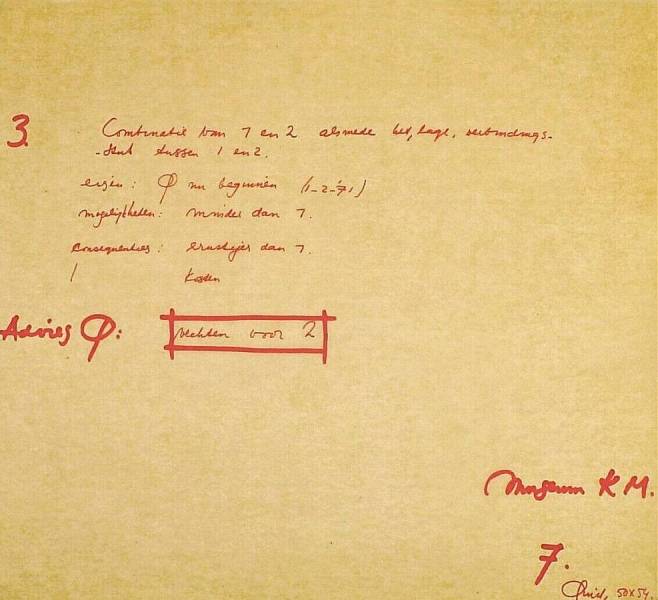 3.
Combinatie van 1 en 2 alsmede het, lage, verbindings-
-stuk tussen 1 en 2.
eisen: Q nu beginnen (1-2-'71)
mogelijkheden: minder dan 1.
consequenties: ernstiger dan 1.
kosten
Advies Q:
vechten voor 2
Museum K M.
7.
Quist, 50x54.